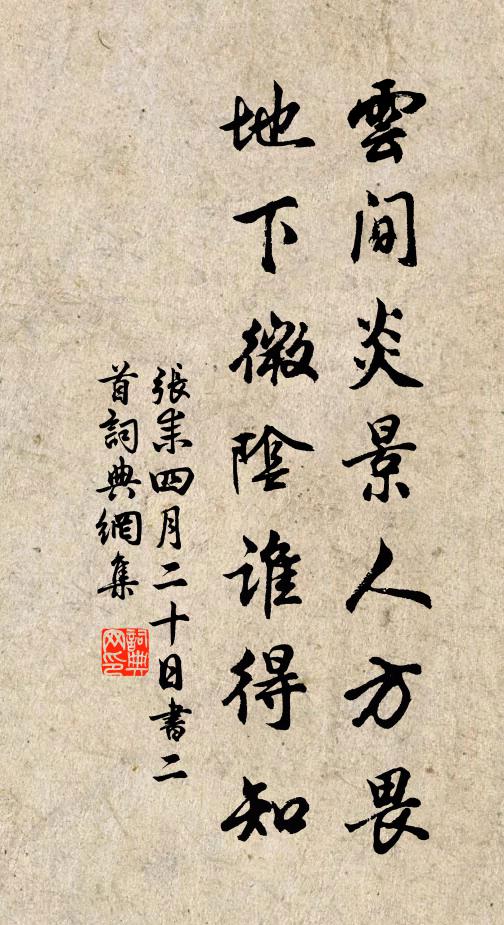 雲間炎景人方畏
地下微陰誰得知
張耒四月二十日書二
首詞典網集
詞典
网印